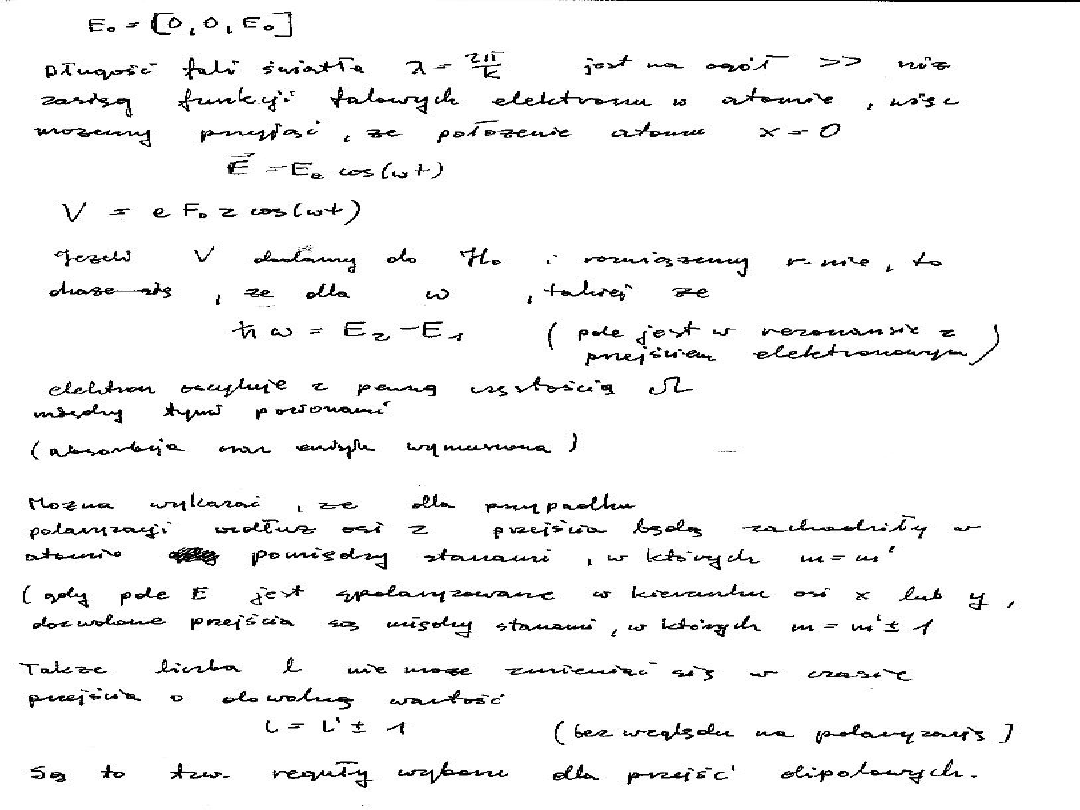 E₀ = [0, 0, E₀]
Długość fali światła λ = 2π/k jest na ogół >> niż
zasięg funkcji falowych elektronu w atomie, więc
możemy przyjąć, że położenie atomu x = 0
E⃗ = E₀ cos(ωt)
V = e F₀ z cos(ωt)
Jeżeli V dodamy do H₀ i rozwiążemy r-nie, to
okaże się, że dla ω, takiej że
ħω = E₂ - E₁ ( pole jest w rezonansie z
przejściem elektronowym )
elektron oscyluje z pewną częstością Ω
między tymi poziomami
(absorbcja oraz emisja wymuszona)
Można wykazać, że dla przypadku
polaryzacji wzdłuż osi z przejścia będą zachodziły w
atomie pomiędzy stanami, w których m = m'
(gdy pole E jest spolaryzowane w kierunku osi x lub y,
dozwolone przejścia są między stanami, w których m = m' ± 1
Także liczba l nie może zmieniać się w czasie
przejścia o dowolną wartość
l = l' ± 1 (bez względu na polaryzację)
Są to tzw. reguły wyboru dla przejść dipolowych.